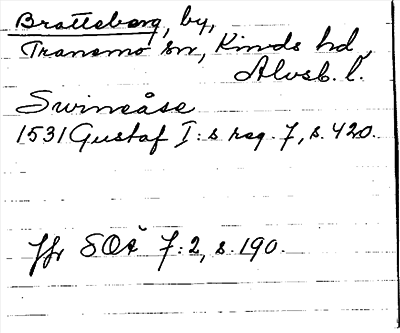 Bratteberg, by,
Tranemo sn, Kinds hd,
Älvsb. l.
Swineåse
1531 Gustaf I:s reg. 7, s. 420.
Jfr SOÄ 7:2, s. 190.